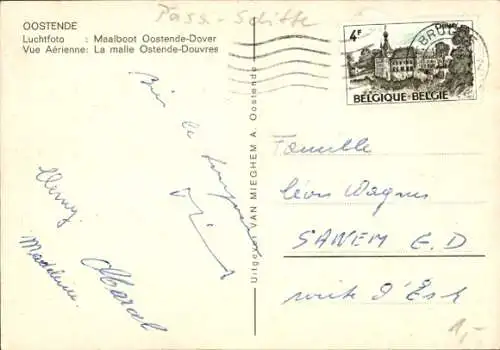 OOSTENDE
Luchtfoto : Maalboot Oostende-Dover
Vue Aérienne: La malle Ostende-Douvres
Pass-Schiffe
4F
BELGIQUE-BELGIE
Uitgever VAN MIEGHEM A. Oostende
Famille
Léon Wagner
SANEM G.D
route d'Esch
Marcel
Madeleine
1,-